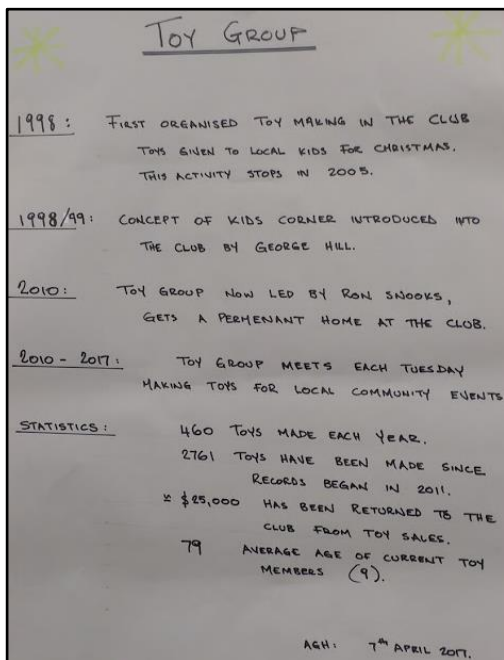 TOY GROUP
1998: FIRST ORGANISED TOY MAKING IN THE CLUB
TOYS GIVEN TO LOCAL KIDS FOR CHRISTMAS.
THIS ACTIVITY STOPS IN 2005.
1998/99: CONCEPT OF KIDS CORNER INTRODUCED INTO
THE CLUB BY GEORGE HILL.
2010: TOY GROUP NOW LED BY RON SNOOKS,
GETS A PERMENANT HOME AT THE CLUB.
2010 - 2017: TOY GROUP MEETS EACH TUESDAY
MAKING TOYS FOR LOCAL COMMUNITY EVENTS
STATISTICS: 460 TOYS MADE EACH YEAR.
2761 TOYS HAVE BEEN MADE SINCE
RECORDS BEGAN IN 2011.
≈ $25,000 HAS BEEN RETURNED TO THE
CLUB FROM TOY SALES.
79 AVERAGE AGE OF CURRENT TOY
MEMBERS (9).
AGH: 7th APRIL 2017.